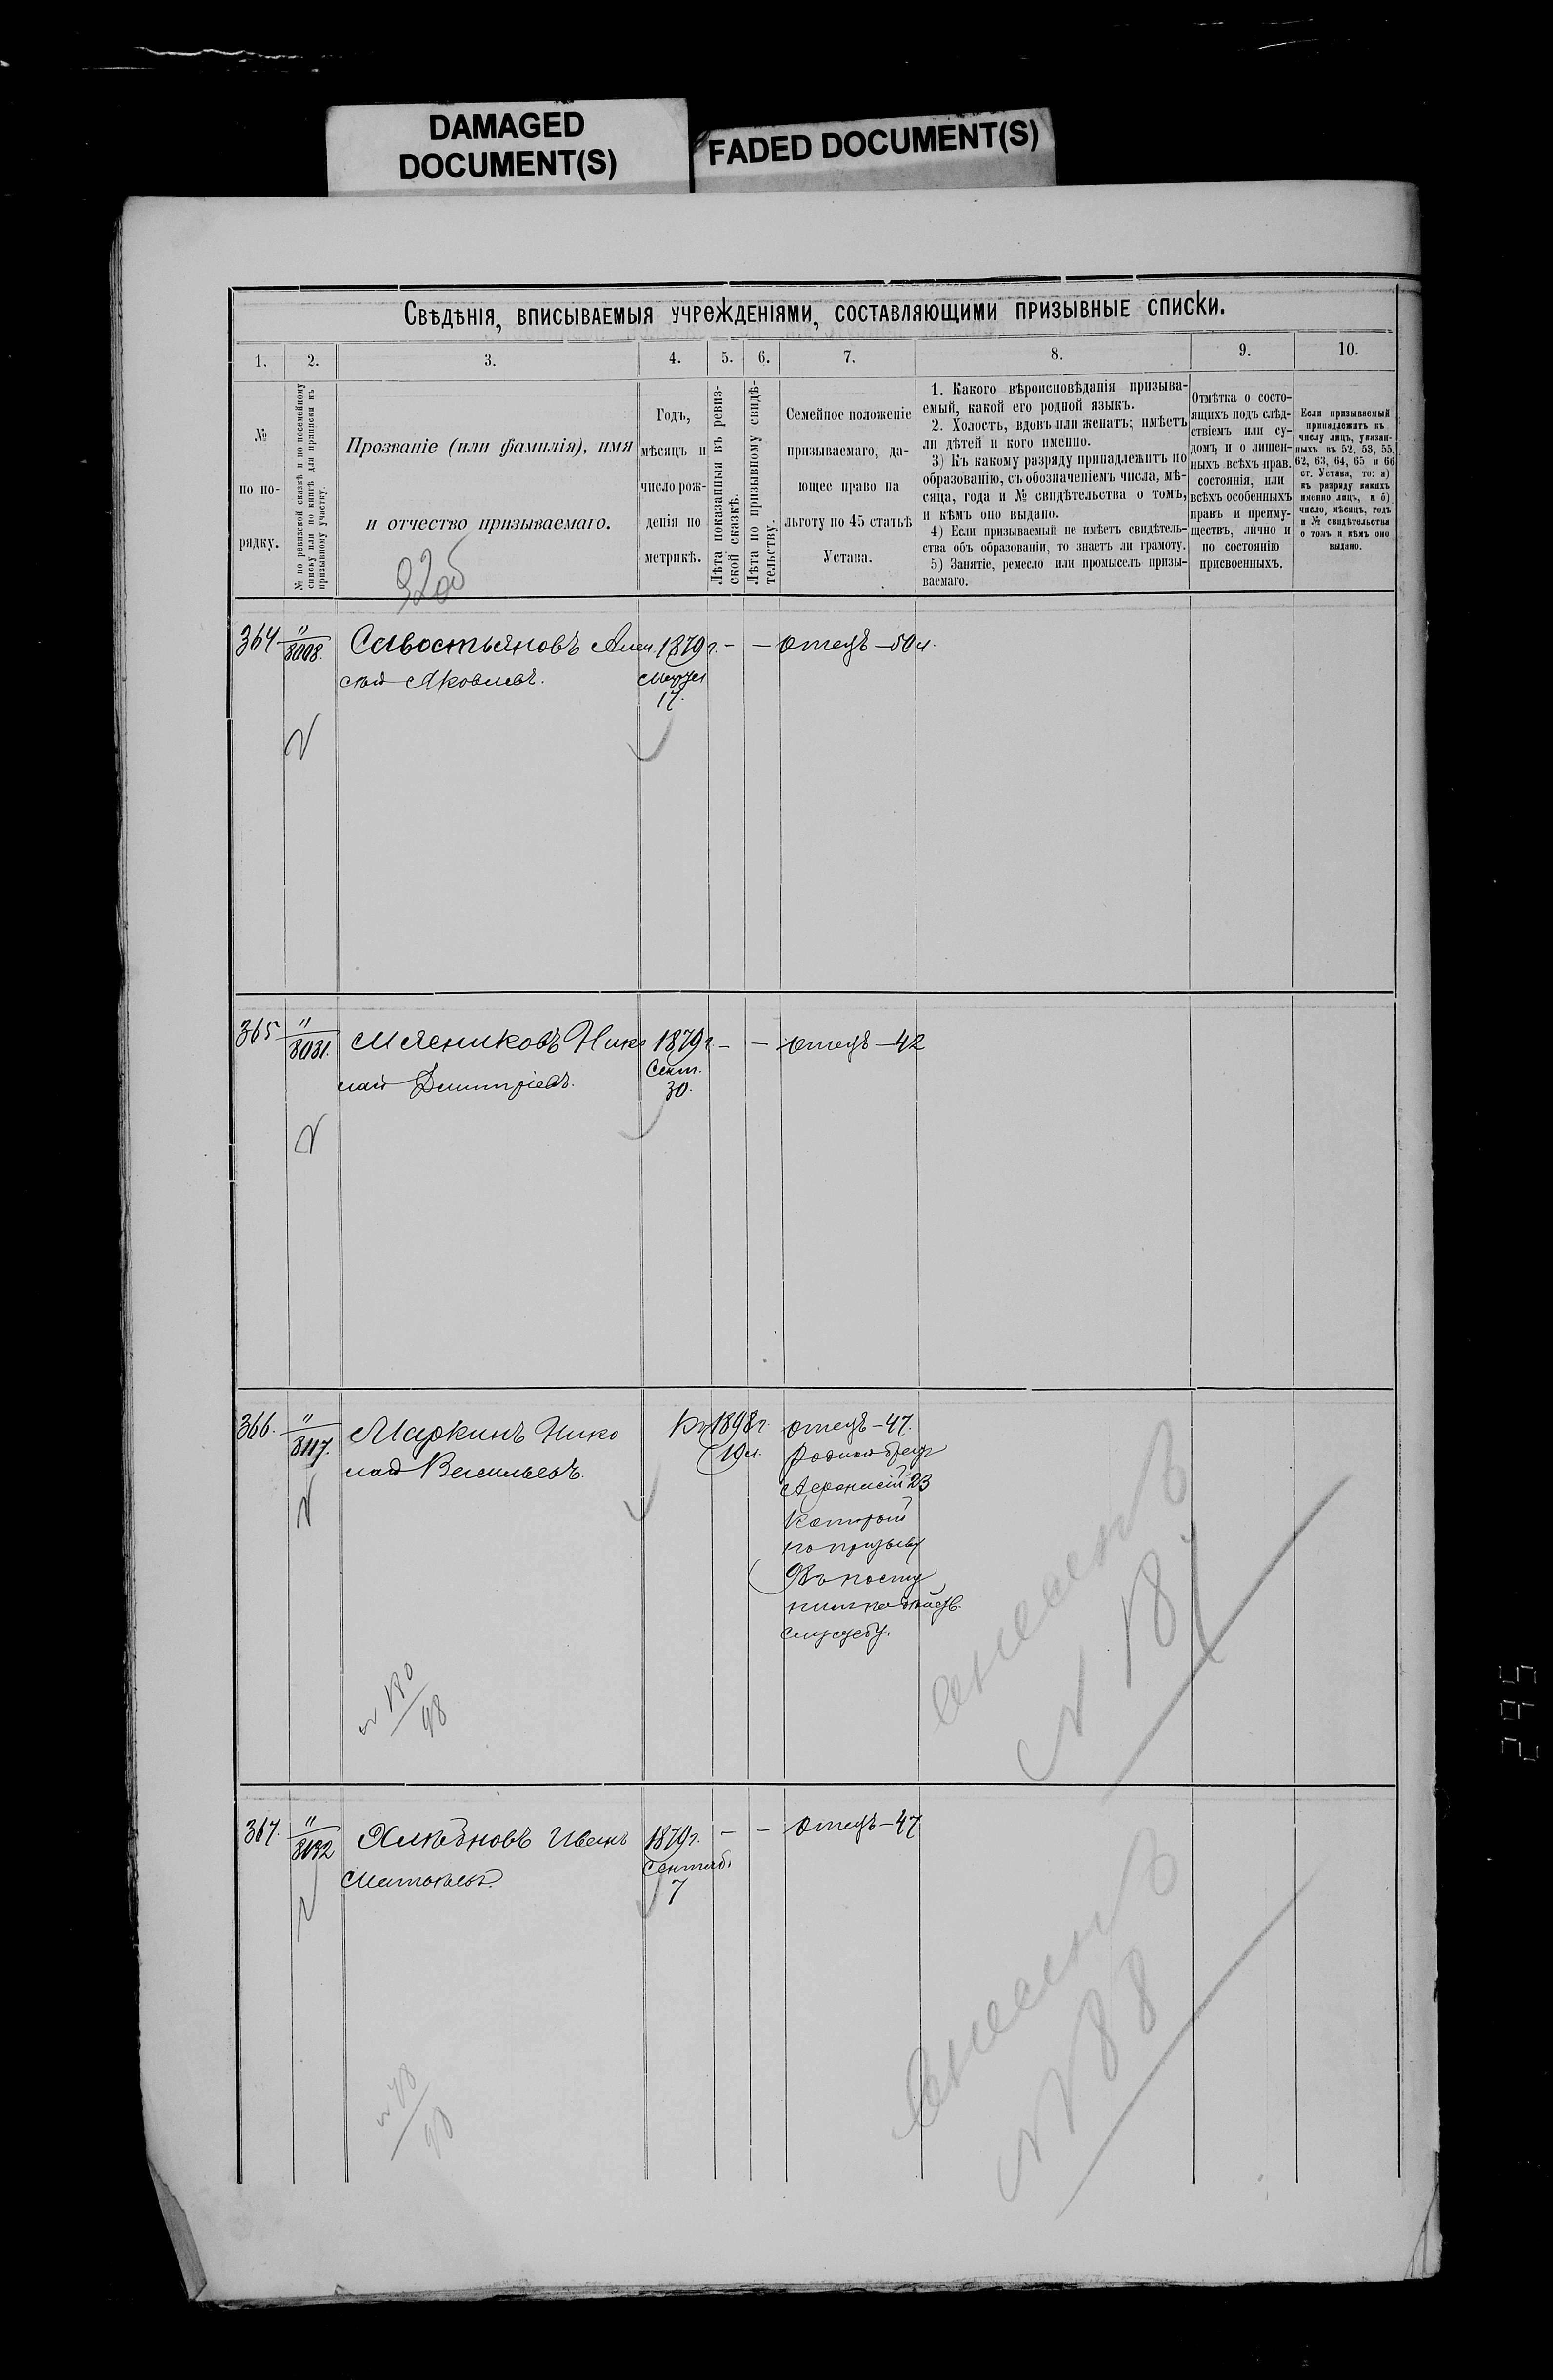 DAMAGED
DOCUMENT(S)
FADED DOCUMENT(S)
Свѣдѣнія, вписываемыя учрежденіями, составляющими призывные списки.
1.
2.
3.
4.
5.
6.
7.
8.
9.
10.
№
по по-
рядку.
№ по ревизской сказкѣ и по посемейному
списку или по книгѣ для приписки къ
призывному участку.
Прозваніе (или фамилія), имя
и отчество призываемаго.
Годъ,
мѣсяцъ и
число рож-
денія по
метрикѣ.
Лѣта показанныя въ ревиз-
ской сказкѣ.
Лѣта по призывному свидѣ-
тельству.
Семейное положеніе
призываемаго, да-
ющее право на
льготу по 45 статьѣ
Устава.
1. Какого вѣроисповѣданія призыва-
емый, какой его родной языкъ.
2. Холостъ, вдовъ или женатъ; имѣетъ
ли дѣтей и кого именно.
3) Къ какому разряду принадлежитъ по
образованію, съ обозначеніемъ числа, мѣ-
сяца, года и № свидѣтельства о томъ,
и кѣмъ оно выдано.
4) Если призываемый не имѣетъ свидѣтель-
ства объ образованіи, то знаетъ ли грамоту.
5) Занятіе, ремесло или промыселъ призы-
ваемаго.
Отмѣтка о состо-
ящихъ подъ слѣд-
ствіемъ или су-
домъ и о лишен-
ныхъ всѣхъ прав.
состоянія, или
всѣхъ особенныхъ
правъ и преиму-
ществъ, лично и
по состоянію
присвоенныхъ.
Если призываемый
принадлежитъ къ
числу лицъ, указан-
ныхъ въ 52, 53, 55,
62, 63, 64, 65 и 66
ст. Устава, то: а)
къ разряду какихъ
именно лицъ, и б)
число, мѣсяцъ, годъ
и № свидѣтельства
о томъ и кѣмъ оно
выдано.
92об
364. " 8008. Савостьяновъ Алек 1879г. – – отецъ – 50 л.
сѣй Яковлевъ. Марта
17.
365 " 8081. Мясниковъ Нико 1879г. – – отецъ – 42
лай Дмитріевъ. Сент.
30.
366. " 8117. Маркинъ Нико 1898г. отецъ – 47.
лай Васильевъ. 19 л. родной братъ
Афанасій 23
который
по призыву
98 г. посту
пилъ на дѣйств.
службу.
внесенъ
№ 187
№ 180/98
367. " 8132 Иванъ 1879г. – – отецъ – 47
Матвѣевъ. Сентяб.
7
внесенъ
№ 88
295